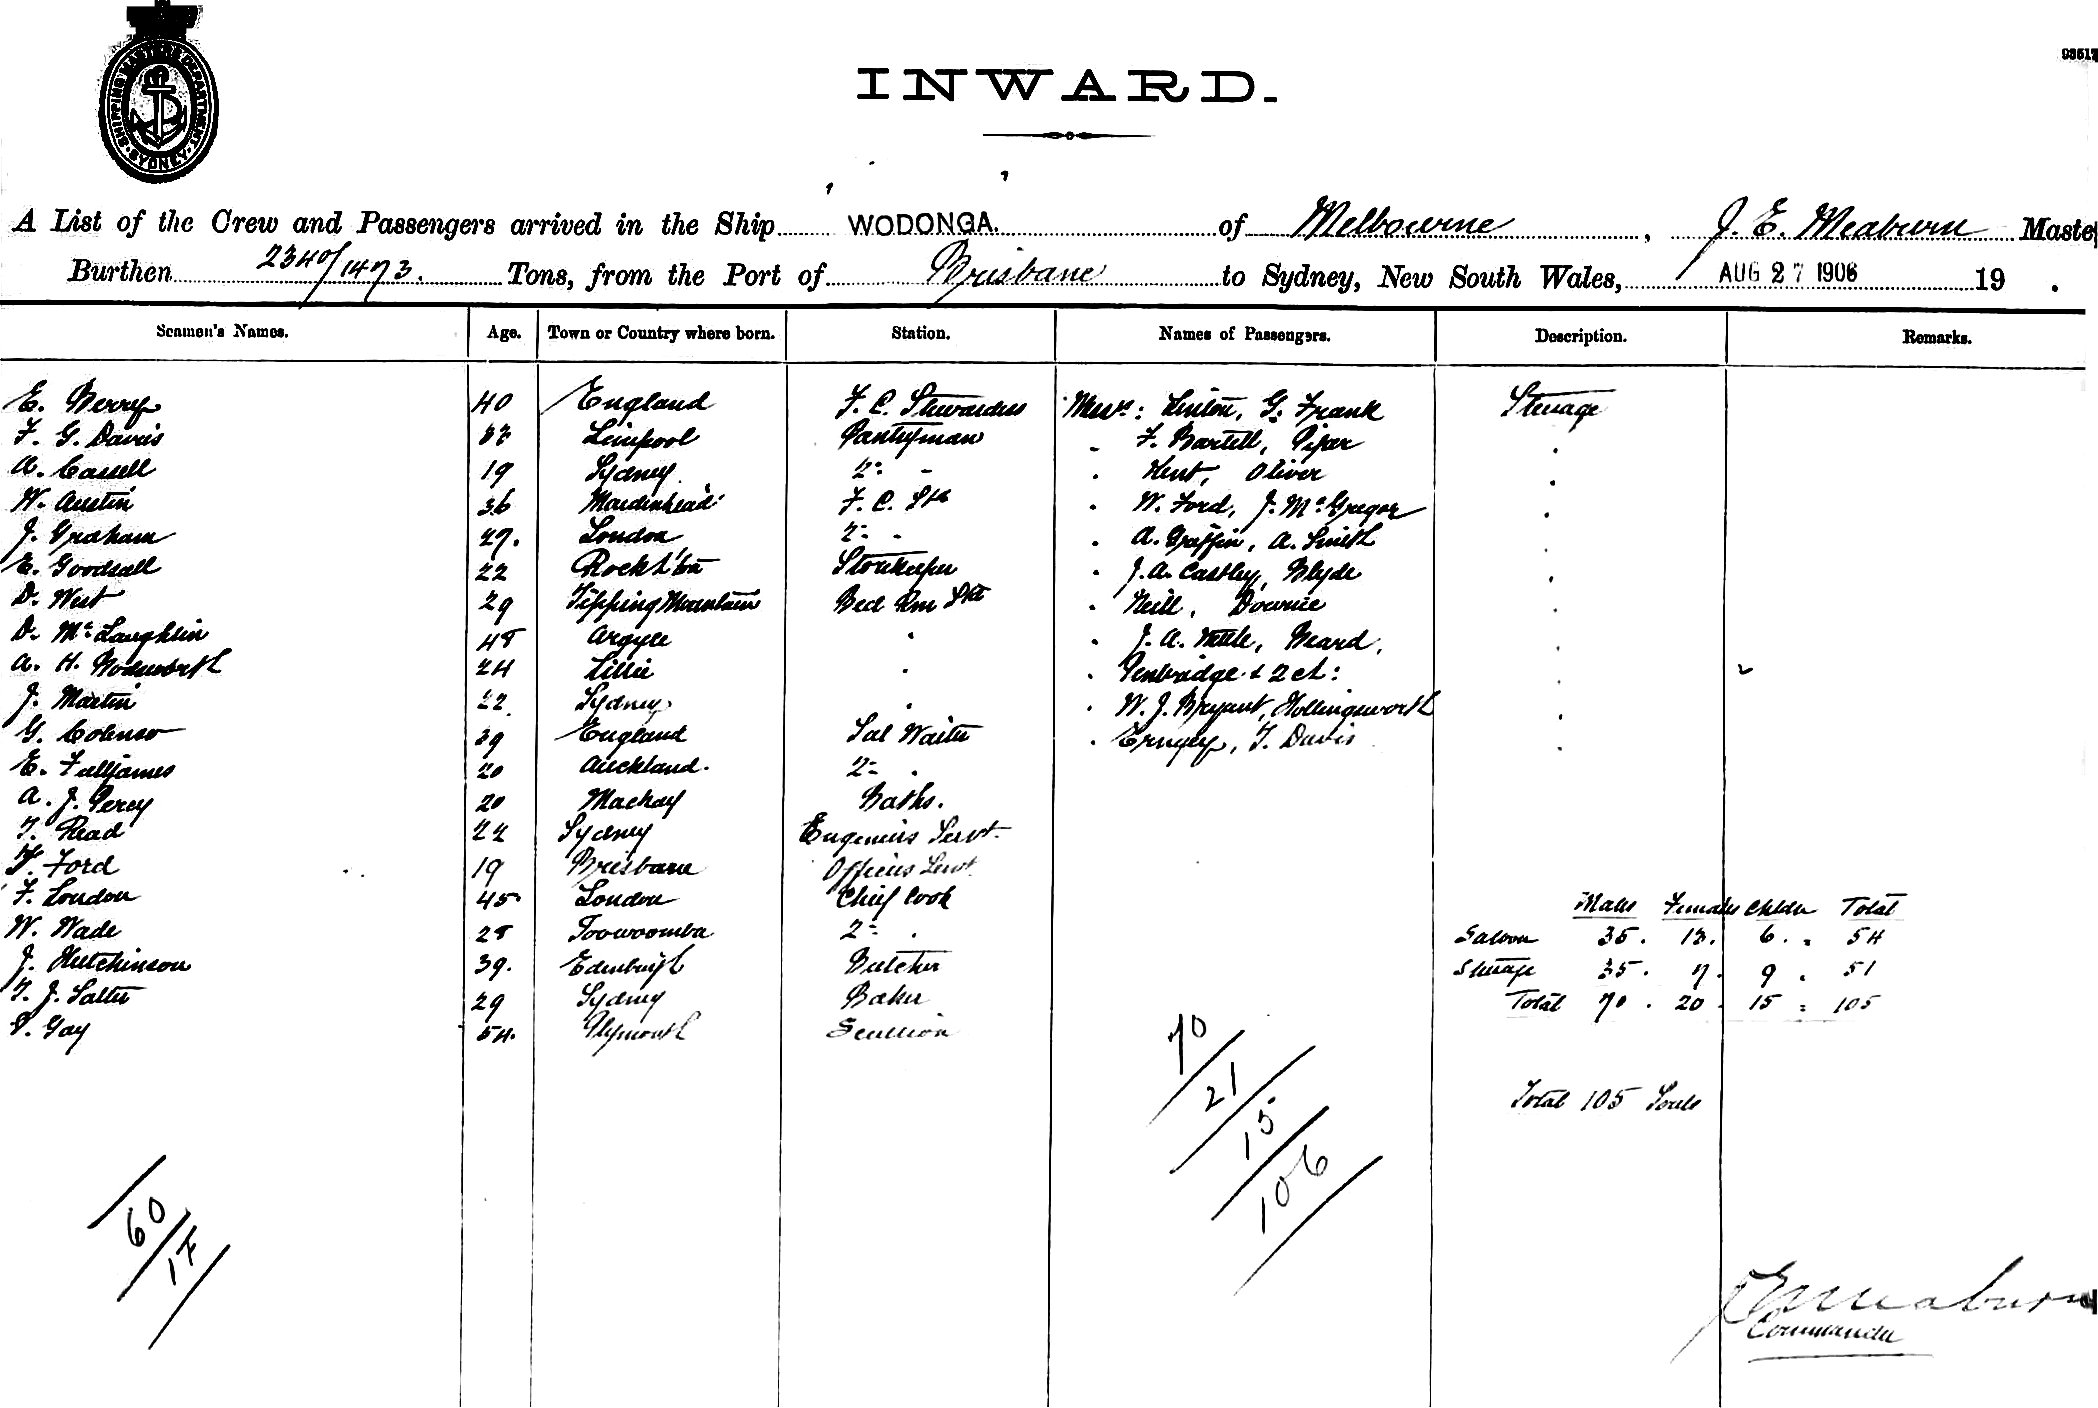 SHIPPING MASTERS DEPARTMENT. SYDNEY.
93517
INWARD.
A List of the Crew and Passengers arrived in the Ship WODONGA. of Melbourne, J. E. Meaburn Maste
Burthen 2340/1473. Tons, from the Port of Brisbane to Sydney, New South Wales, AUG 27 1906 19 .
Seamen's Names. Age. Town or Country where born. Station. Names of Passengers. Description. Remarks.
E. Berry 40 England F. C. Stewardess Messrs: Linton, G. Frank Steerage
F. G. Davis Liverpool Pantryman " F. Bartell, Piper "
A. Cassell 19 Sydney 2: - " Kent, Oliver "
W. Austin 36 Maidenhead F. C. Std " W. Ford, J. McGregor "
J. Graham 27. London 2: - " A. Griffin, A. Smith "
E. Goodsall 22 Rockh'ton Storekeeper " J. A. Castley, Blyde "
D. West 29 Tipping Mountain Bed Rm Std " Neill, Downie "
D. McLaughlin 48 Argyle " " J. A. Beard, "
A. H. 24 Lillie " " Penbridge & 2 ch: "
J. Martin 22 Sydney " " W. J. Bryant, Hollingsworth "
G. Colenso 39 England Sal Waiter " T. Davis "
E. Fulljames 20 Auckland. 2: "
A. J. Percy 20 Mackay Baths.
T. Read 22 Sydney Engineers Servt.
Ford 19 Brisbane Officers Servt.
F. London 45 London Chief Cook
Males Females Childn Total
W. Wade 28 Toowoomba 2: "
Saloon 35. 13. 6. = 54
J. Hutchinson 39. Edenburgh Butcher
Steerage 35. 7. 9. 51
T. J. Salter 29 Sydney Baker
Total 70. 20. 15 = 105
Gay 54. Plymouth Scullion
70
21
15
106
Total 105 Souls
60
17
J E Meaburn
Commander